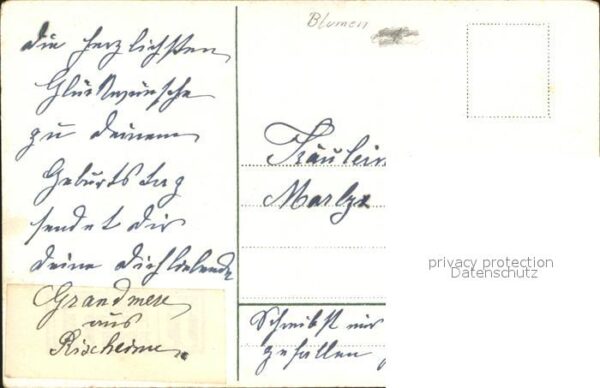 die herzlichsten
Glückwünsche
zu deinem
Geburtstag
sendet dir
deine dichliebende
Grandmere
aus
Rixheim.
Blumen
Fräulein
Schreibst mir
gefallen
privacy protection
Datenschutz